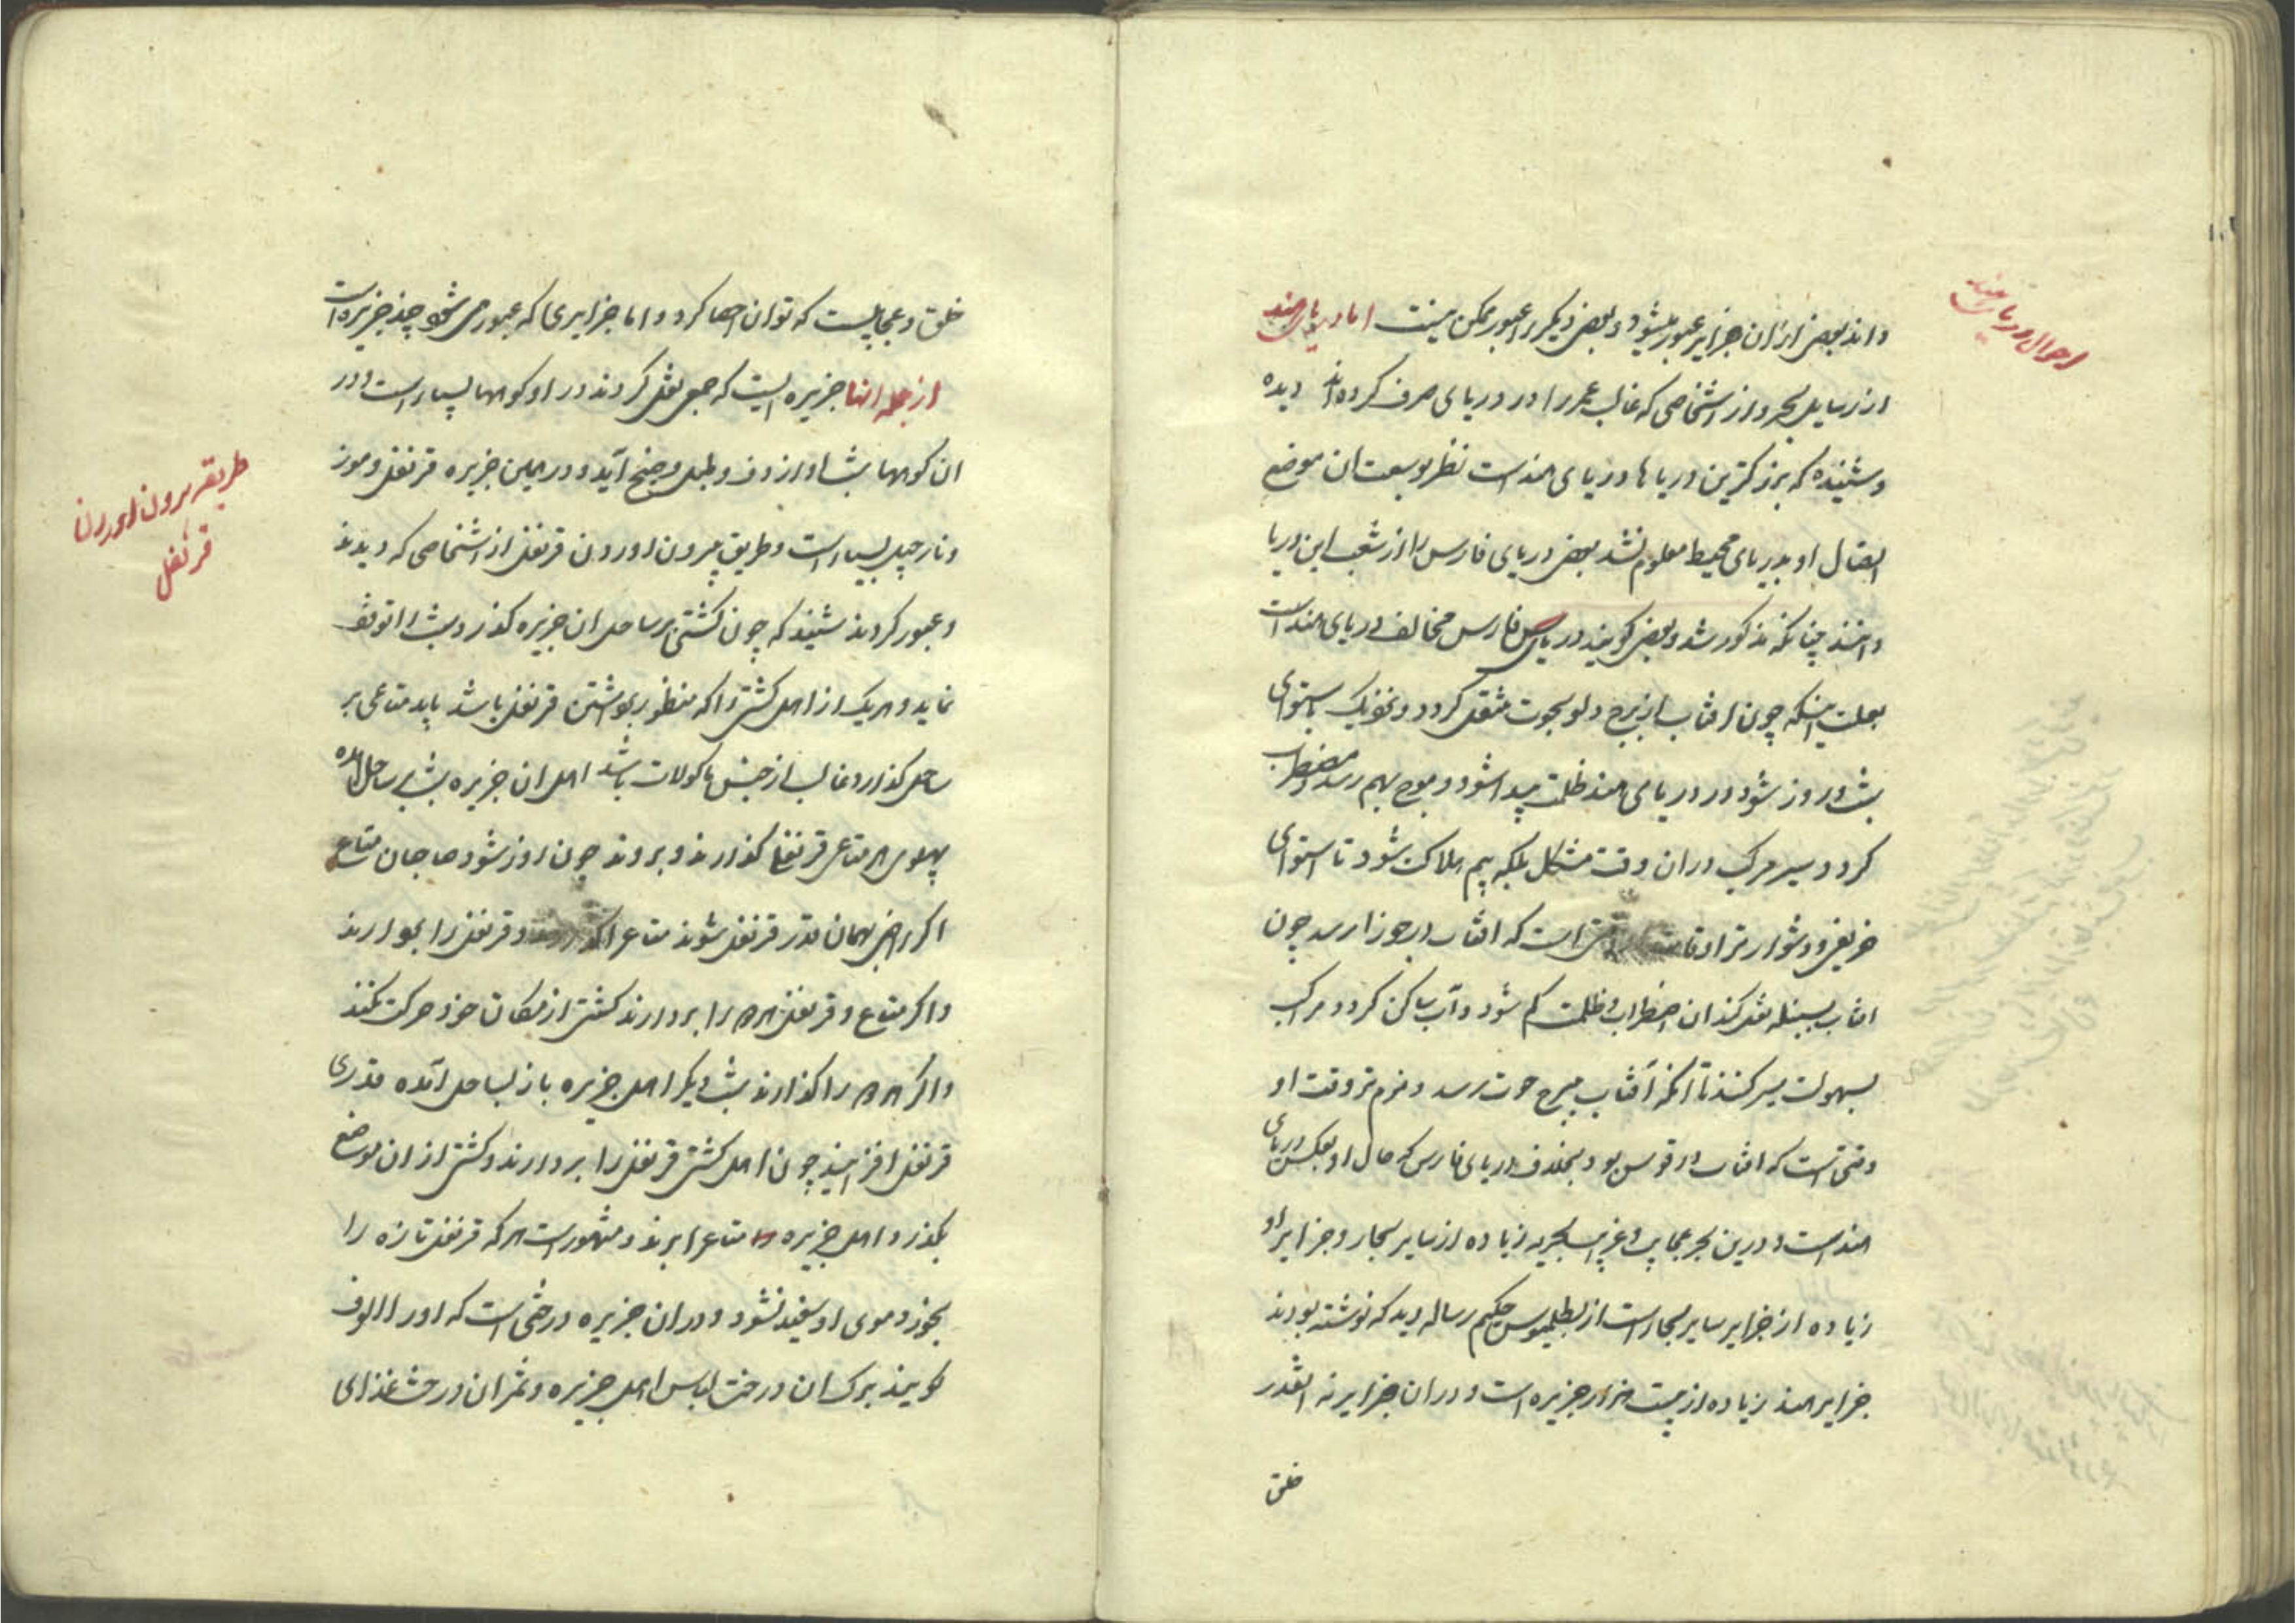 احوال دریای هند
داند بعضی از ان جزایر عبور میشود و بعضی دیگر را عبور ممکن نیست اما دریای هند
از رسایل بحر و از اشخاصی که غالب عمر را در دریای صرف کرده‌اند دیده
و شنیده که بزرکترین دریاها دریای هند است نظر بوسعت ان موضع
اتصال او بدریای محیط معلوم نشد بعضی دریای فارس را از شعب این دریا
دانند چنانکه مذکور شد و بعضی کویند دریای فارس مخالف دریای هند است
بعلت اینکه چون افتاب از برج دلو بحوت منتقل کردد و نزدیک باستوای
شب و روز شود در دریای هند ظلمت پیدا شود و موج بهم رسد و مضطرب
کردد و سیر مرکب در ان وقت مشکل بلکه بیم هلاکت شود تا استوای
خریفی و دشوارتر اوقات است که افتاب بجوزا رسد چون
افتاب بسنبله نقل کند ان اضطراب و ظلمت کم شود و آب ساکن کردد و مراکب
بسهولت سیر کنند تا انکه آفتاب ببرج حوت رسد و نرم‌تر وقت او
وقتی است که افتاب در قوس بود بخلاف دریای فارس که حال او بعکس دریای
هند است و درین بحر عجایب و غرایب بحریه زیاده از سایر بحار و جزایر او
زیاده از جزایر سایر بحار است از بطلمیوس حکیم رساله دید که نوشته بودند
جزایر هند زیاده از بیست هزار جزیره است و در ان جزایر نه انقدر
خلق
خلق و عجایبست که توان احصا کرد و اما جزایری که عبور می‌شود چند جزیره است
از جمله انها جزیره ایست که جمعی نقل کردند در او کوهها بسیار است و در
ان کوهها شبها اواز دف و طبل و صنج آید و در همین جزیره قرنفل و موز
و نارجیل بسیار است و طریق بیرون اوردن قرنفل از اشخاصی که دیدند
و عبور کردند شنید که چون کشتی بر ساحل ان جزیره کذرد شب را توقف
نماید و هر یک از اهل کشتی را که منظور برداشتن قرنفل باشد باید متاعی بر
ساحل کذارد و غالب از جنس ماکولات باشد اهل ان جزیره شب بر ساحل آمده
پهلوی هر متاعی قرنفل کذارند و بروند چون روز شود صاحبان متاع
اکر راضی بهمان قدر قرنفل شوند متاع را کذارند و قرنفل را بردارند
و اکر متاع و قرنفل هر دو را بردارند کشتی از مکان خود حرکت نکند
و اکر هر دو را کذارند شب دیکر اهل جزیره باز بساحل آمده قدری
قرنفل افزایند چون اهل کشتی قرنفل را بردارند و کشتی از ان موضع
بکذرد اهل جزیره متاع را برند و مشهور است هر که قرنفل تازه را
بخورد موی او سفید نشود و در ان جزیره درختی است که او را الوف
کویند برک ان درخت لباس اهل جزیره و ثمر ان درخت غذای
طریقه بیرون اوردن
قرنفل